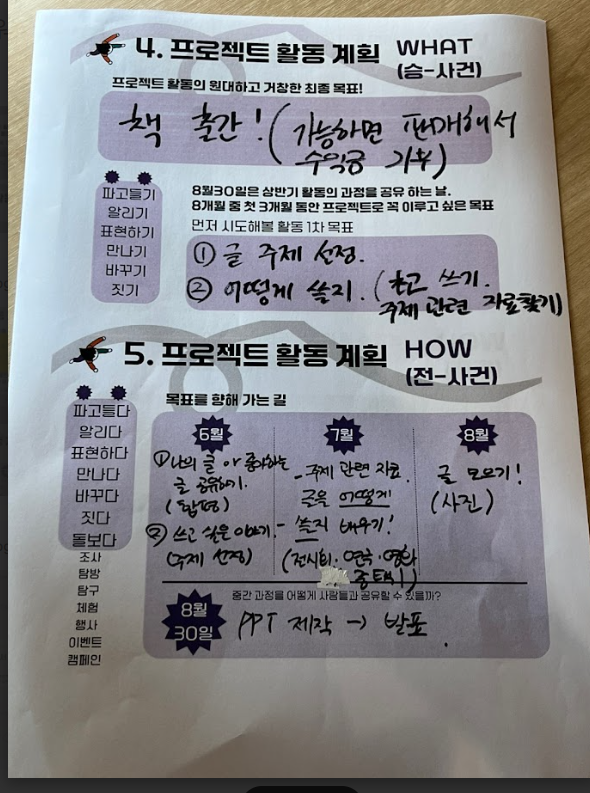 4. 프로젝트 활동 계획 WHAT
(승-사건)
프로젝트 활동의 원대하고 거창한 최종 목표!
책 출간! (가능하면 판매해서
수익금 기부)
파고들기
알리기
표현하기
만나기
바꾸기
짓기
8월30일은 상반기 활동의 과정을 공유 하는 날.
8개월 중 첫 3개월 동안 프로젝트로 꼭 이루고 싶은 목표
먼저 시도해볼 활동 1차 목표
① 글 주제 선정.
② 어떻게 쓸지. (초고 쓰기.
주제 관련 자료찾기)
5. 프로젝트 활동 계획 HOW
(전-사건)
목표를 향해 가는 길
파고들다
알리다
표현하다
만나다
바꾸다
짓다
돌보다
조사
탐방
탐구
체험
행사
이벤트
캠페인
6월
① 나의 글 or 좋아하는
글 공유하기.
② 쓰고 싶은 이야기.
(주제 선정)
7월
- 주제 관련 자료.
- 글을 어떻게
쓸지 배우기!
(전시회·연극·영화
중 택1)
8월
글 모으기!
(사진)
중간 과정을 어떻게 사람들과 공유할 수 있을까?
8월
30일
PPT 제작 → 발표.